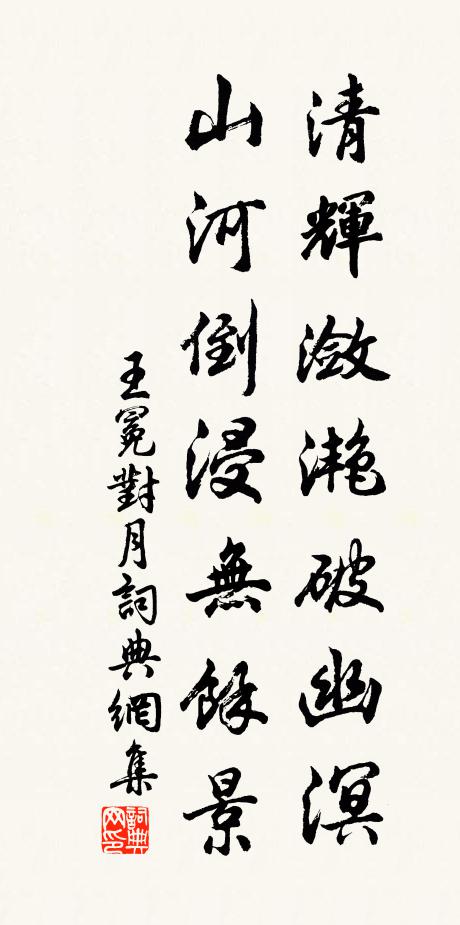 清輝瀲灧破幽溟
山河倒浸無餘景
王冕對月詞典網集
詞典網印